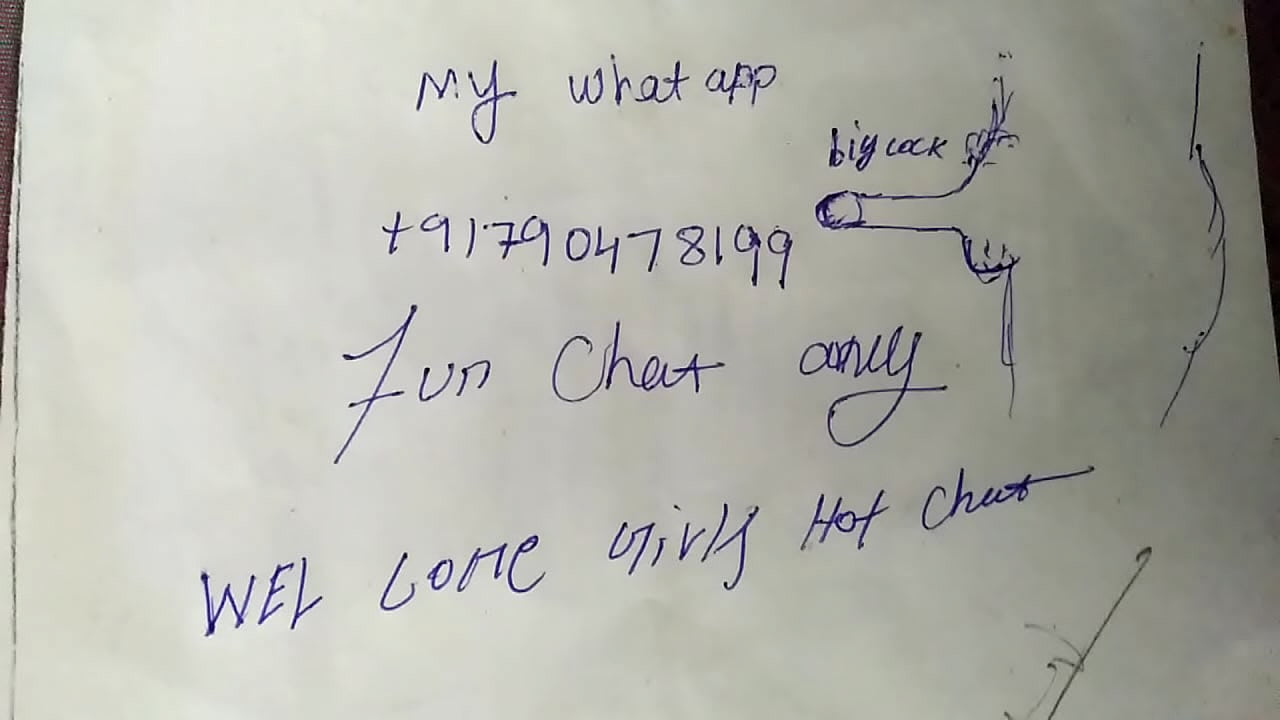 My whatapp
big cock
+91790478199
Fun Chat only
WEL come Girls Hot Chat